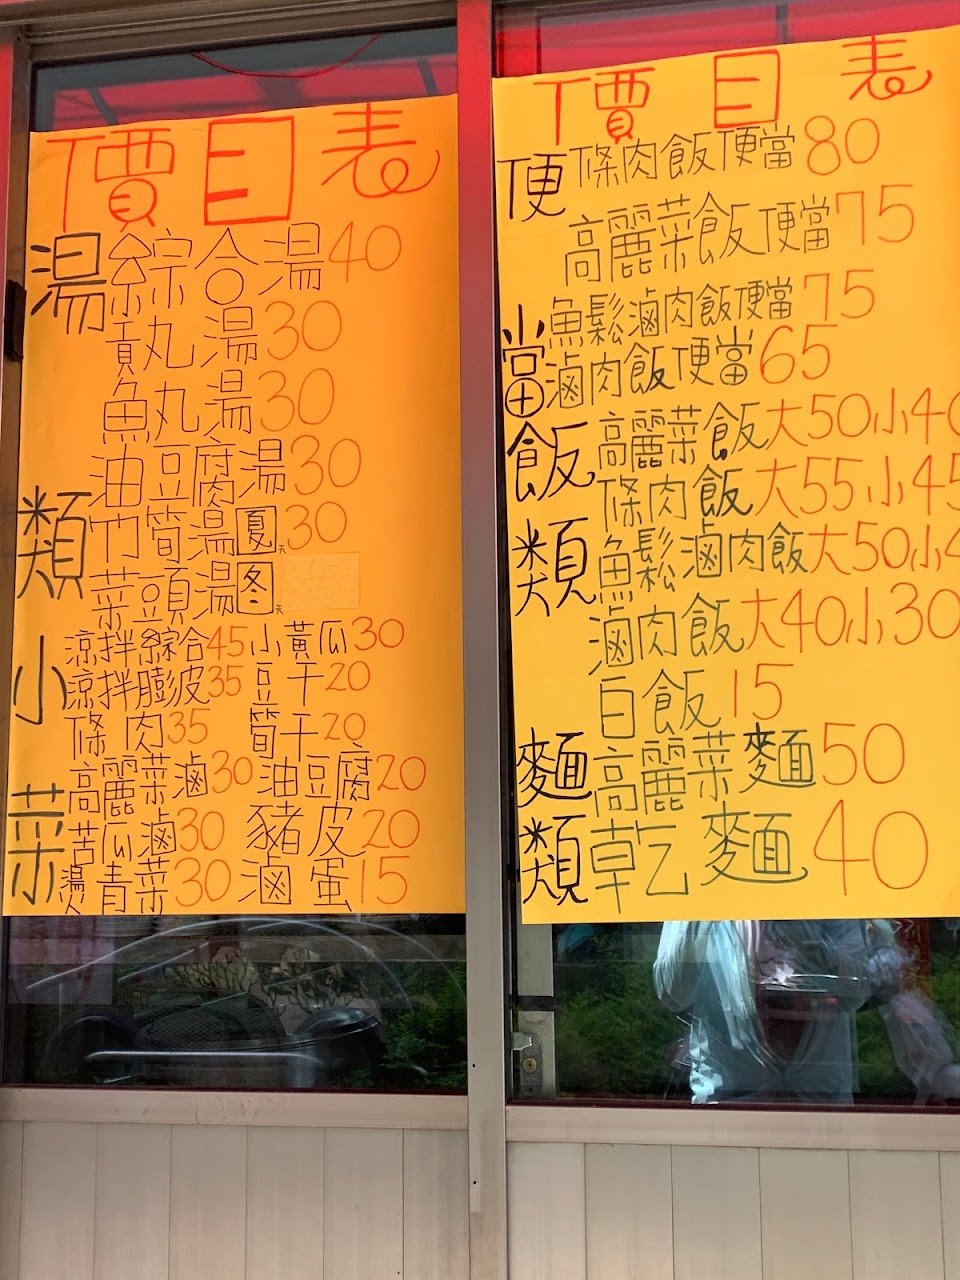 價目表
湯類
綜合湯40
貢丸湯30
魚丸湯30
油豆腐湯30
竹筍湯夏天30
菜頭湯冬天
小菜
涼拌綜合45 小黃瓜30
涼拌膨皮35 豆干20
條肉35 筍干20
高麗菜滷30 油豆腐20
苦瓜滷30 豬皮20
燙青菜30 滷蛋15
價目表
便當
條肉飯便當80
高麗菜飯便當75
魚鬆滷肉飯便當75
滷肉飯便當65
飯類
高麗菜飯大50小40
條肉飯大55小45
魚鬆滷肉飯大50小4
滷肉飯大40小30
白飯15
麵類
高麗菜麵50
乾麵40